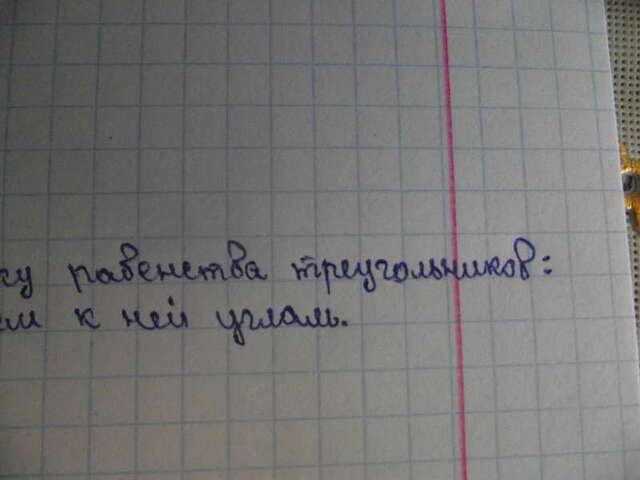 ку равенства треугольников:
ем к ней углам.